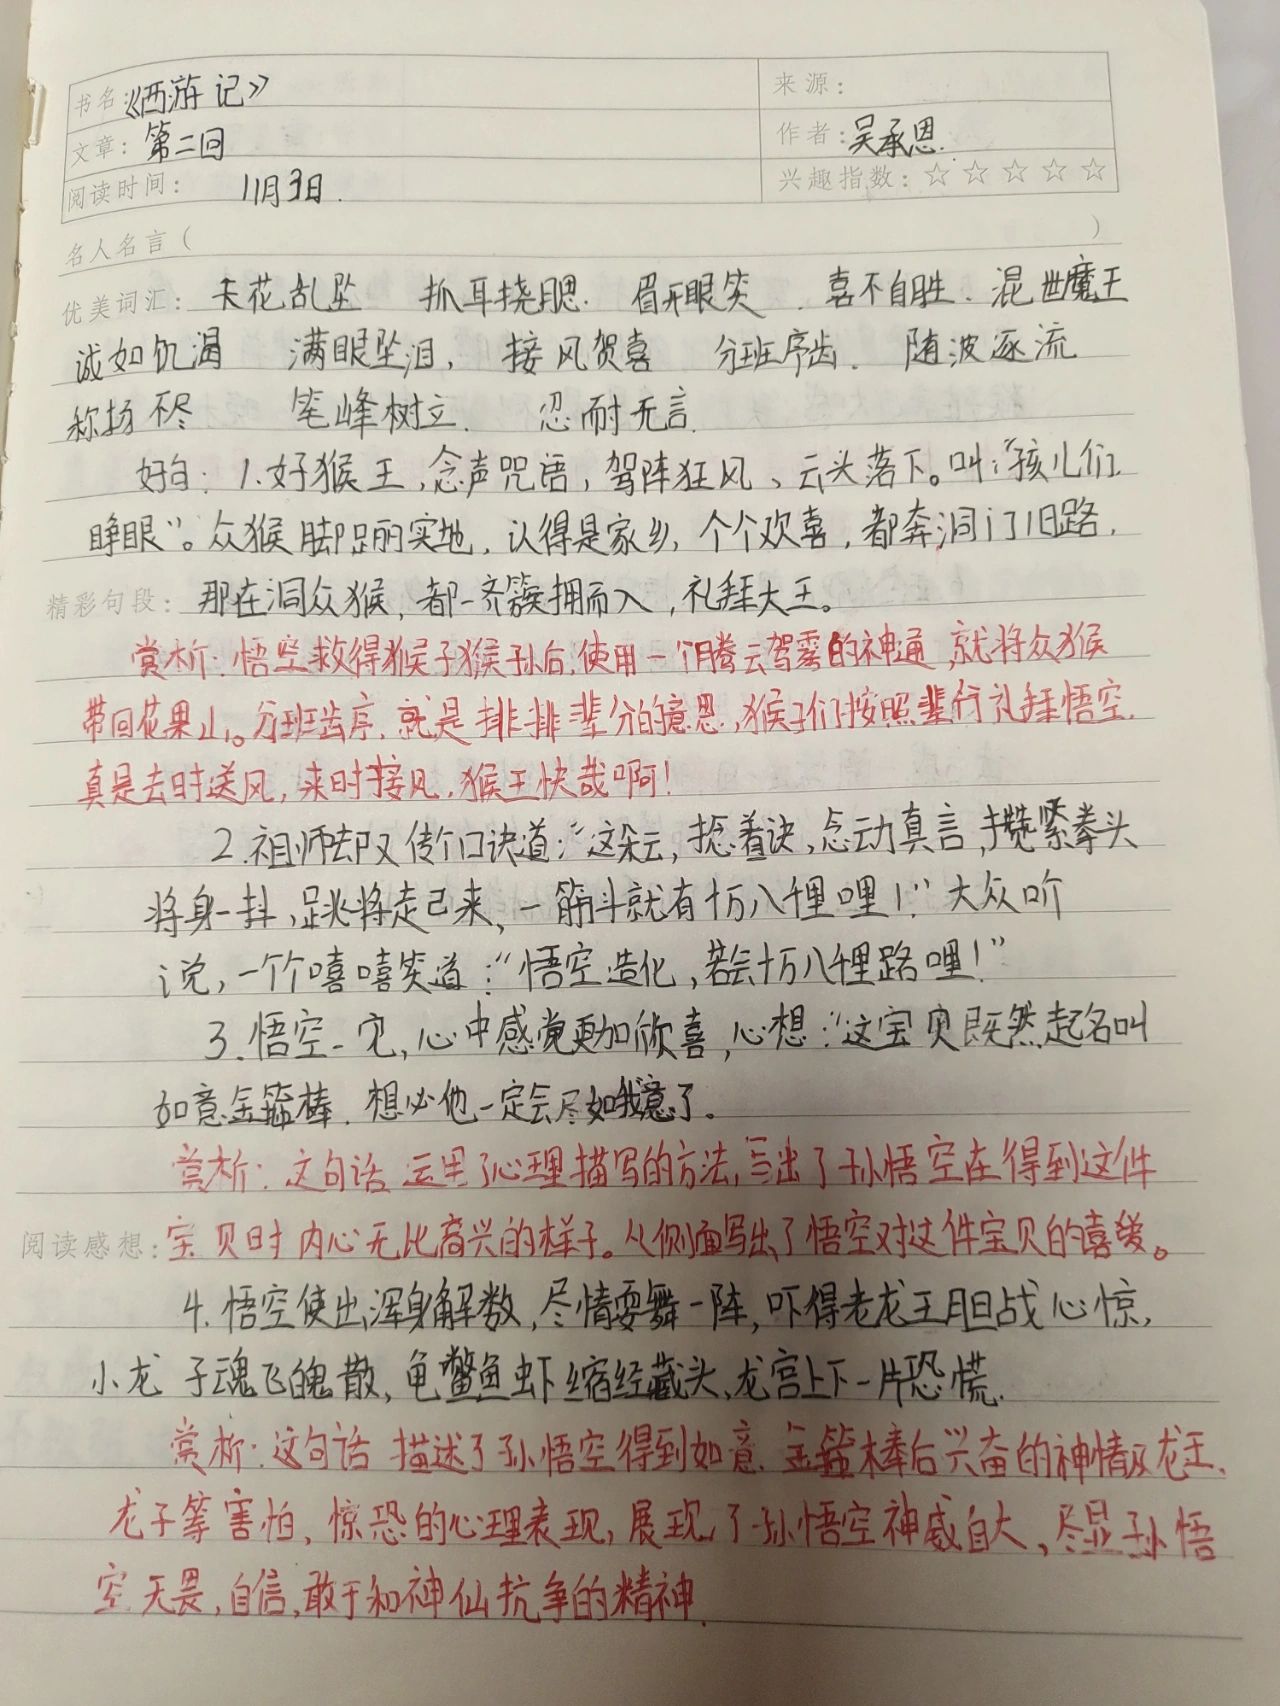 书名：《西游记》
来源：
文章：第二回
作者：吴承恩.
阅读时间： 11月3日.
兴趣指数：☆☆☆☆☆
名人名言（ ）
优美词汇：天花乱坠 抓耳挠腮. 眉开眼笑. 喜不自胜. 混世魔王
诚如饥渴 满眼坠泪, 接风贺喜 分班序齿. 随波逐流
称扬不尽 笔峰树立. 忍耐无言.
好句: 1.好猴王,念声咒语,驾阵狂风、云头落下。叫:“孩儿们
睁眼”。众猴脚踩实地,认得是家乡,个个欢喜,都奔洞门旧路.
精彩句段：那在洞众猴,都一齐簇拥而入,礼拜大王。
赏析:悟空救得猴子猴孙后,使用一个腾云驾雾的神通,就将众猴
带回花果山。分班齿序,就是排排辈分的意思,猴子们按照辈行礼拜悟空.
真是去时送风,来时接风,猴王快哉啊!
2.祖师却又传个口诀道:“这朵云,捻着诀,念动真言,攒紧拳头
将身一抖,跳将走已来,一筋斗就有十万八千里哩!”大众听
说,一个个嘻嘻笑道:“悟空造化,若会十万八千里路哩!”
3.悟空一见,心中感觉更加欣喜,心想:“这宝贝既然起名叫
如意金箍棒.想必他一定会尽如我意了。
赏析:这句话运用了心理描写的方法,写出了孙悟空在得到这件
阅读感想：宝贝时内心无比高兴的样子。从侧面写出了悟空对这件宝贝的喜爱。
4.悟空使出浑身解数,尽情耍舞一阵,吓得老龙王胆战心惊,
小龙子魂飞魄散,龟鳖鱼虾缩经藏头,龙宫上下一片恐慌.
赏析:这句话描述了孙悟空得到如意金箍棒后兴奋的神情及龙王、
龙子等害怕、惊恐的心理表现,展现了孙悟空神威自大、尽显孙悟
空无畏,自信,敢于和神仙抗争的精神.